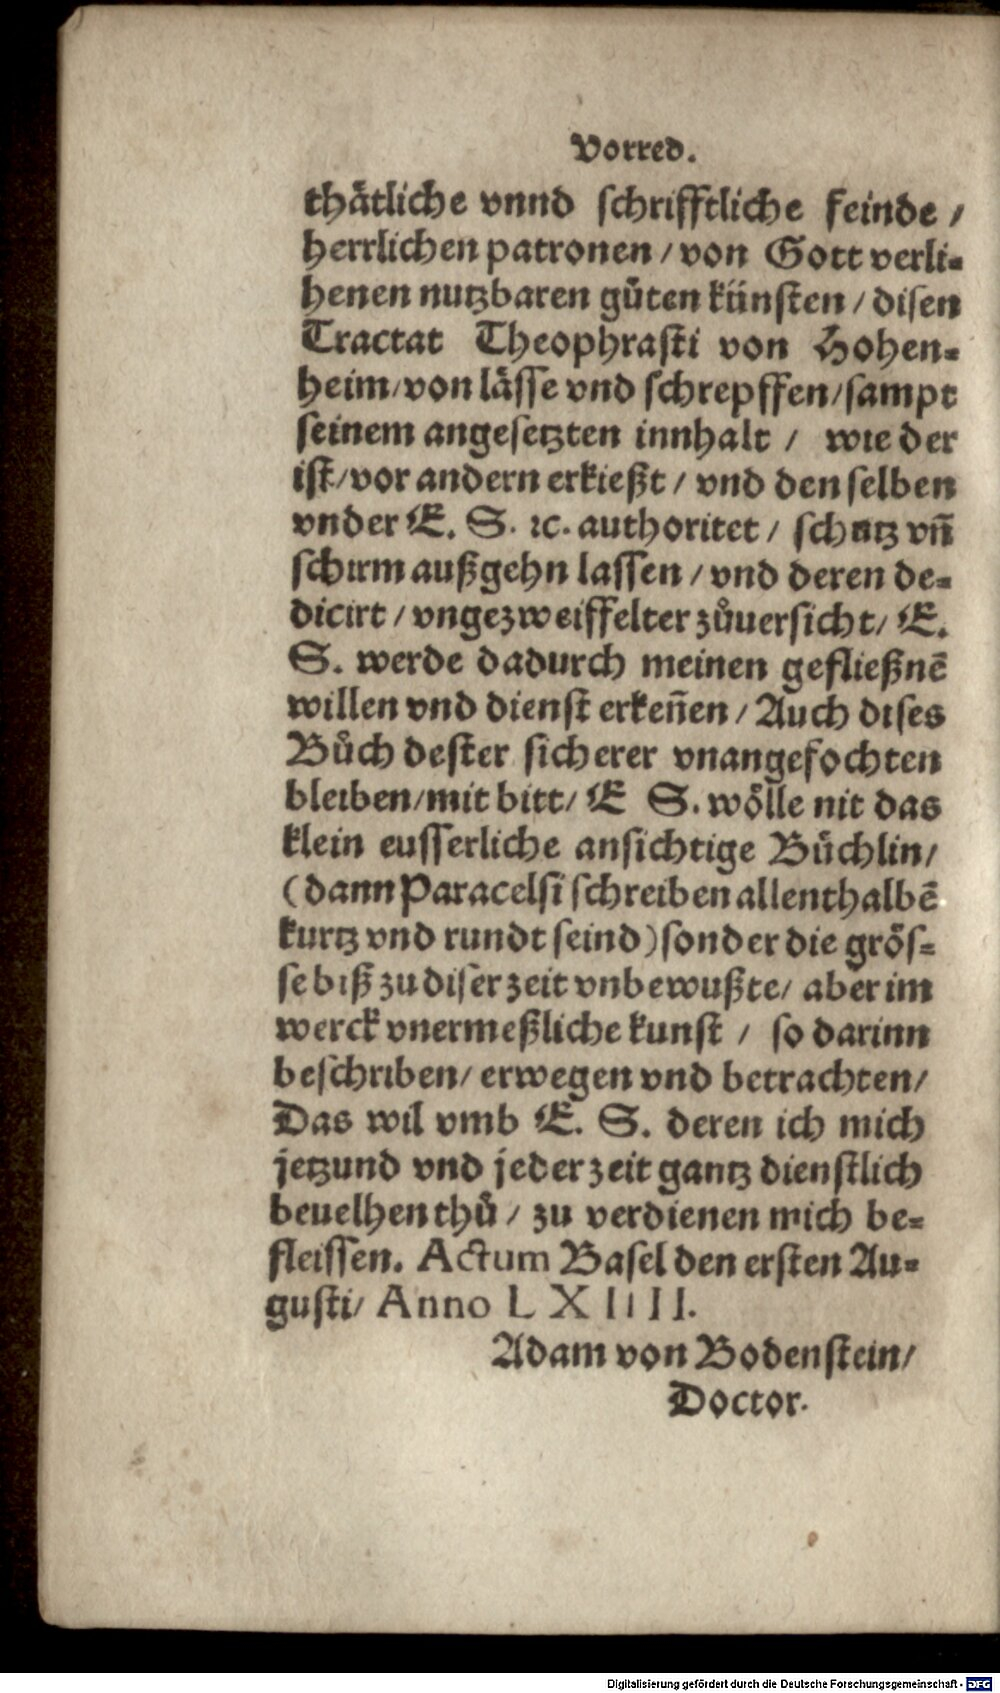 Vorred.
thätliche vnnd schrifftliche feinde /
herrlichen patronen / von Gott verli-
henen nutzbaren gůten künsten / disen
Tractat Theophrasti von Hohen-
heim / von lässe vnd schrepffen / sampt
seinem angesetzten innhalt / wie der
ist / vor andern erkießt / vnd den selben
vnder E. S. ꝛc. authoritet / schutz vñ
schirm außgehn lassen / vnd deren de-
dicirt / vngezweiffelter zůuersicht / E.
S. werde dadurch meinen gefließnē
willen vnd dienst erkeñen / Auch dises
Bůch dester sicherer vnangefochten
bleiben / mit bitt / E S. wölle nit das
klein eusserliche ansichtige Büchlin /
(dann Paracelsi schreiben allenthalbē
kurtz vnd rundt seind) sonder die grös-
se biß zu diser zeit vnbewußte / aber im
werck vnermeßliche kunst / so darinn
beschriben / erwegen vnd betrachten /
Das wil vmb E. S. deren ich mich
jetzund vnd jeder zeit gantz dienstlich
beuelhen thů / zu verdienen mich be-
fleissen. Actum Basel den ersten Au-
gusti / Anno L X I I I I.
Adam von Bodenstein /
Doctor.
Digitalisierung gefördert durch die Deutsche Forschungsgemeinschaft - DFG